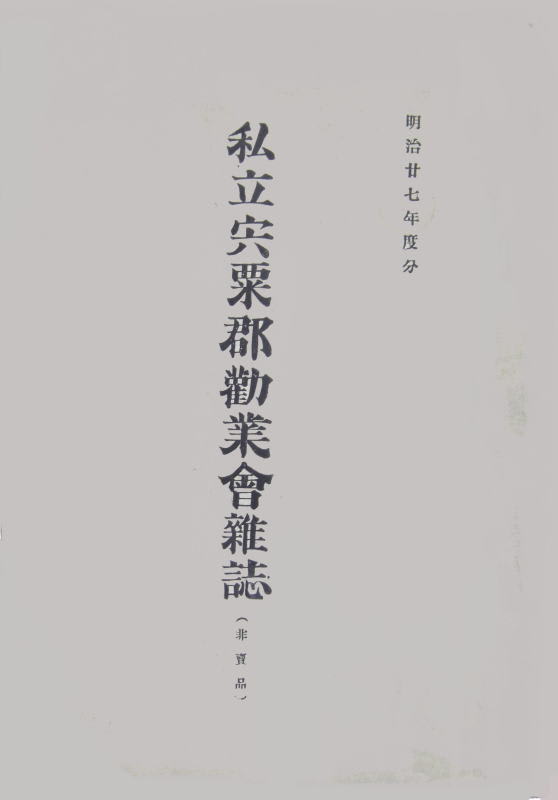 明治廿七年度分
私立宍粟郡勸業會雜誌
（非賣品）